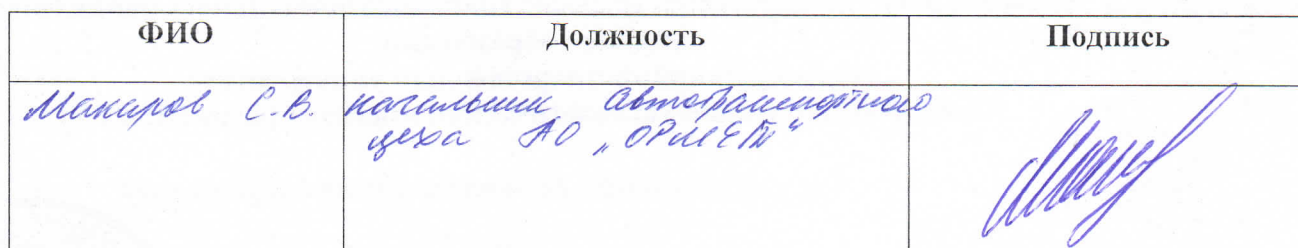 ФИО Должность Подпись
Макаров С.В. начальник автотранспортного
цеха АО „ОРМЕТ"